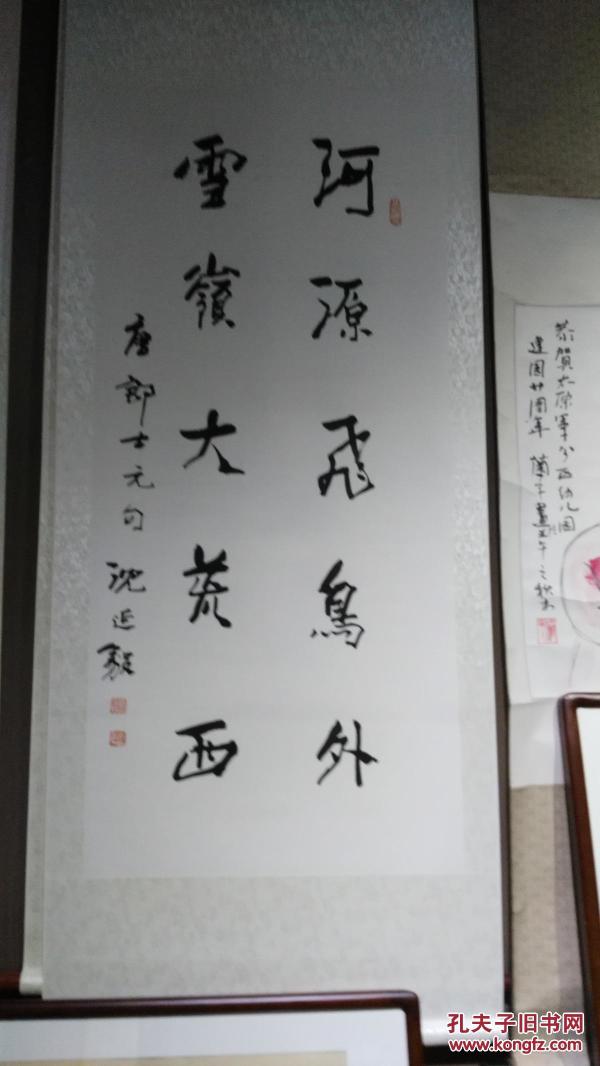 河源飛鳥外
雪嶺大荒西
唐郎士元句 沈延毅
恭賀太原軍分區幼儿园
建園廿周年
孔夫子旧书网
www.kongfz.com